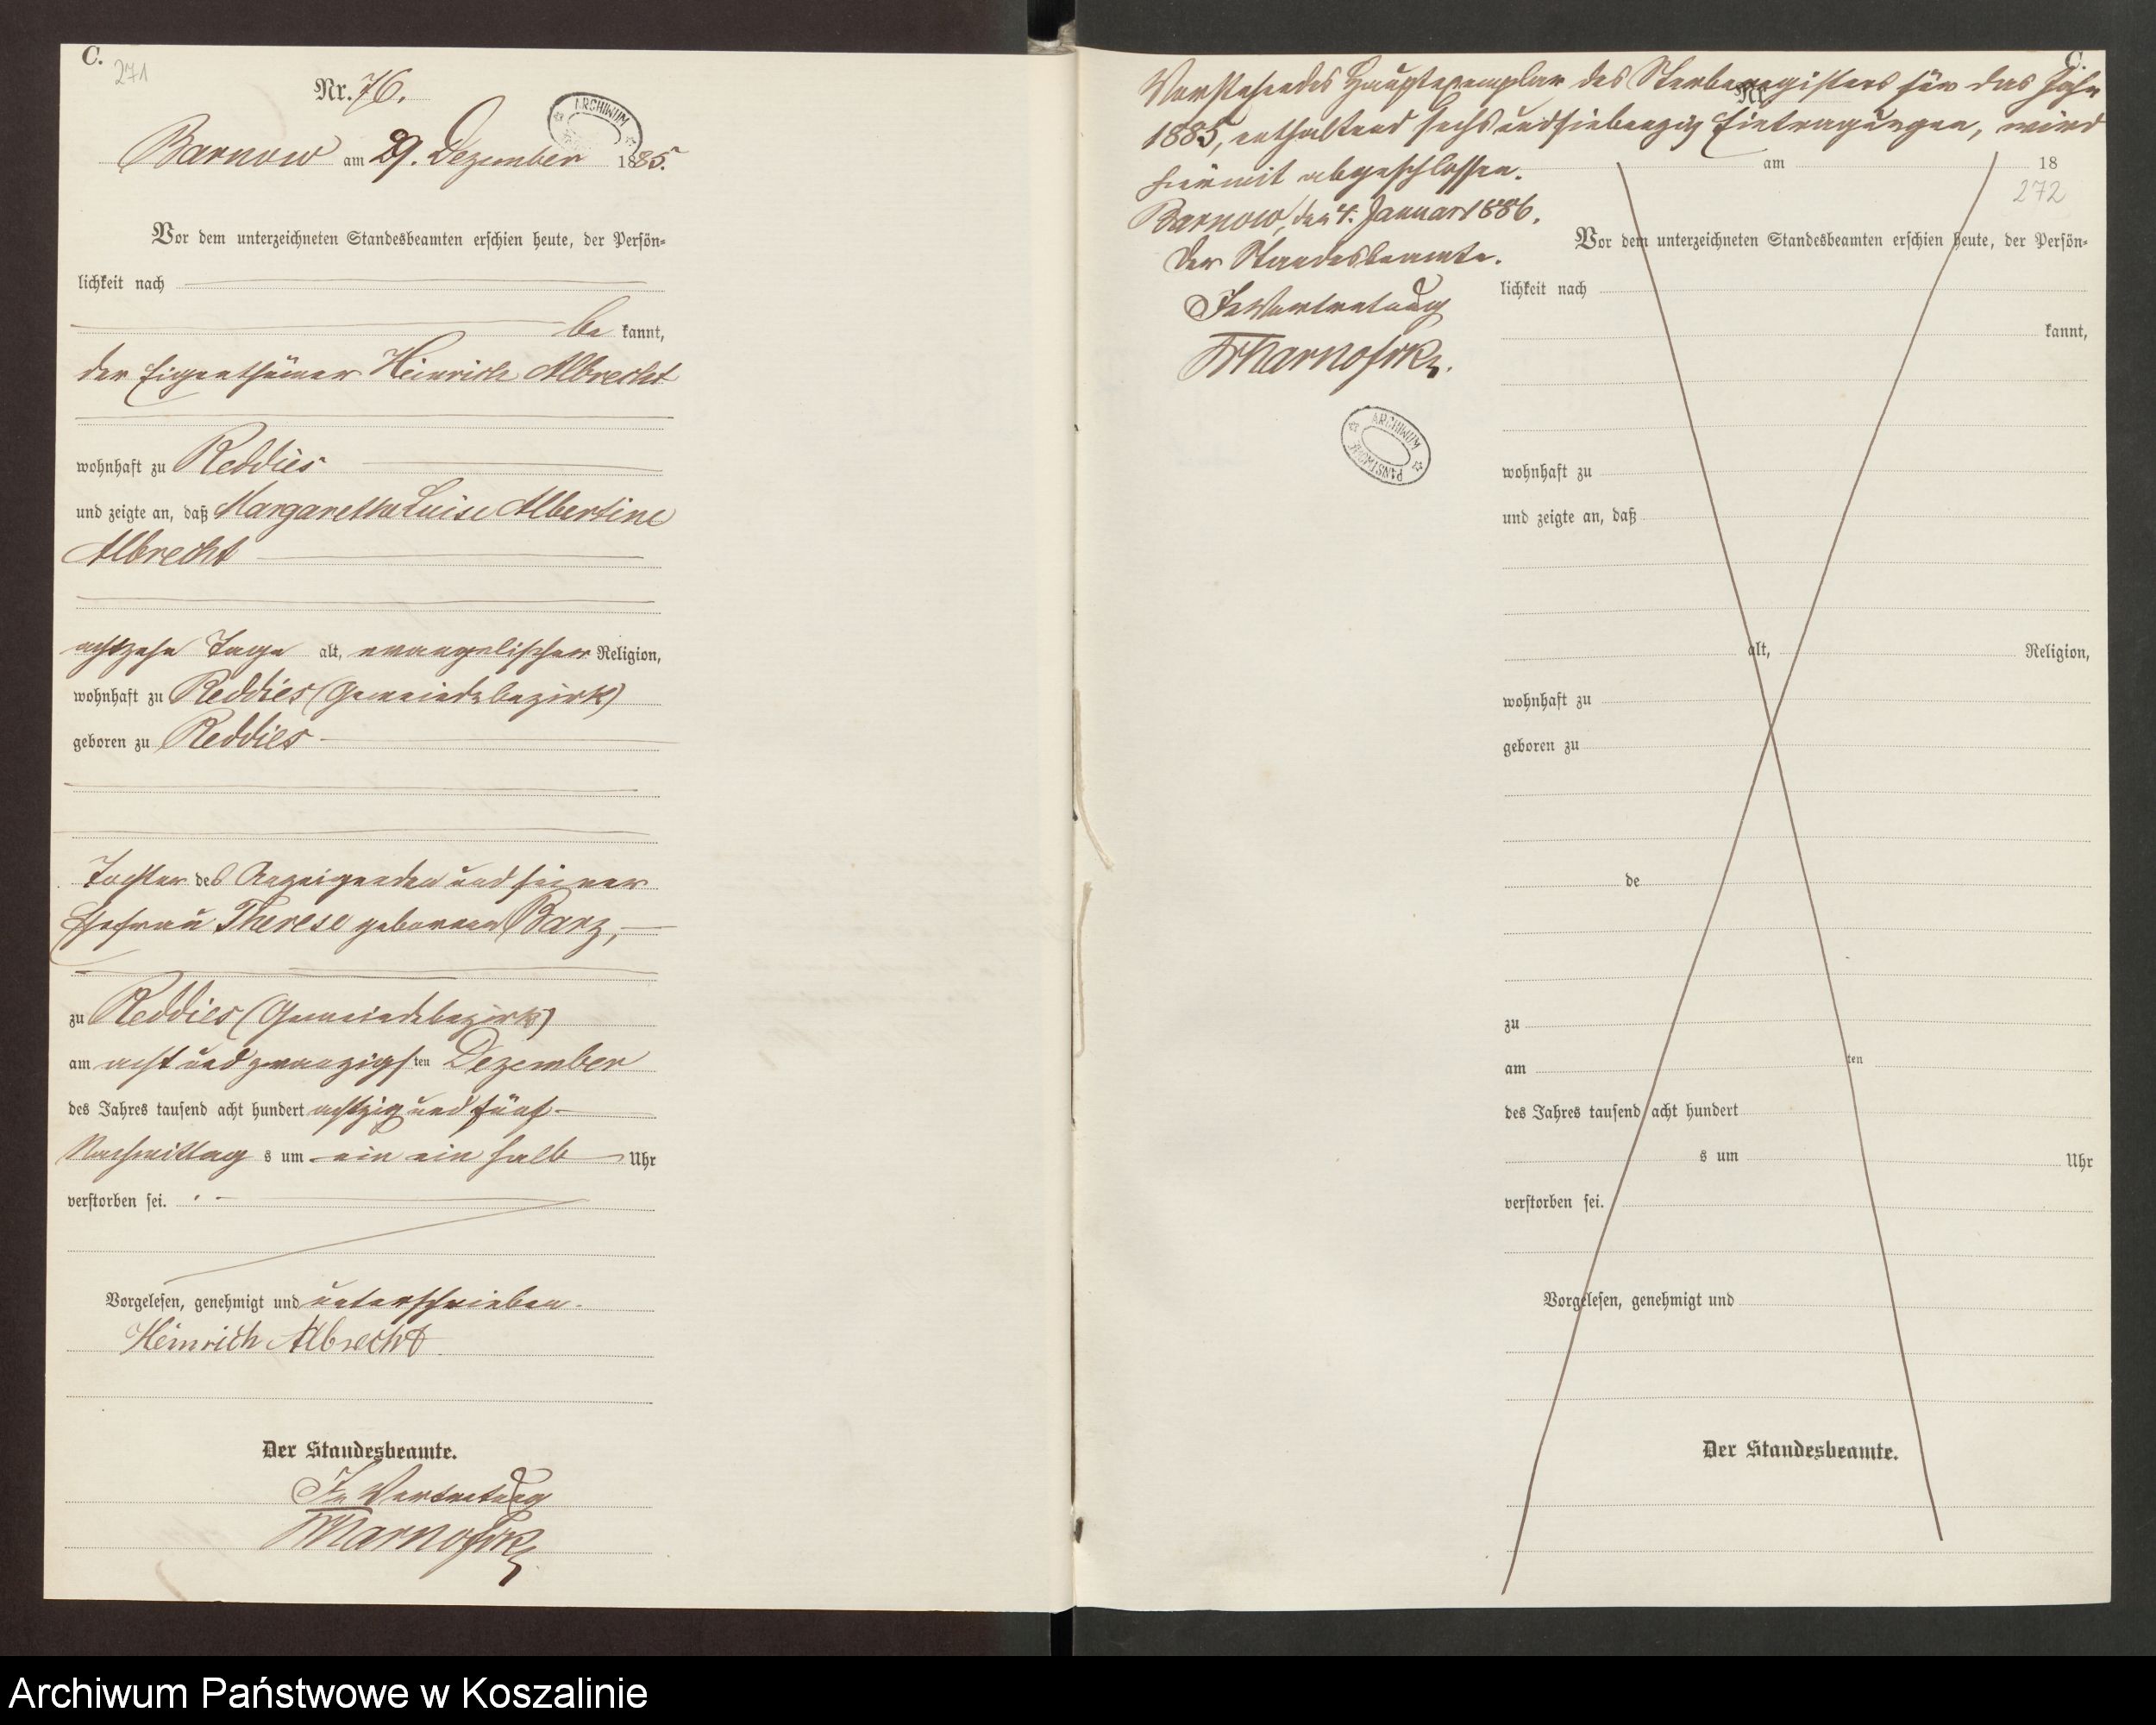 C.
271
Nr. 76.
ARCHIWUM
Barnow am 29. Dezember 1885.
Vor dem unterzeichneten Standesbeamten erschien heute, der Persön-
lichkeit nach
be kannt,
der Eigenthümer Heinrich Albrecht
wohnhaft zu Reddies
und zeigte an, daß Margarethe Luise Albertine
Albrecht
achtzehn Tage alt, evangelischer Religion,
wohnhaft zu Reddies (Gemeindebezirk)
geboren zu Reddies
Tochter des Anzeigenden und seiner
Ehefrau Therese geborenen Barz,
zu Reddies (Gemeindebezirk)
am acht und zwanzigsten Dezember
des Jahres tausend acht hundert achtzig und fünf
Nachmittag s um ein ein halb Uhr
verstorben sei.
Vorgelesen, genehmigt und unterschrieben.
Heinrich Albrecht
Der Standesbeamte.
In Vertretung
C.
Vorstehendes Hauptexemplar des Sterberegisters für das Jahr
Nr.
1885, enthaltend sechs und siebenzig Eintragungen, wird
hiermit abgeschlossen.
Barnow, den 4. Januar 1886.
Der Standesbeamte.
In Vertretung
ARCHIWUM PAŃSTWOWE
am 18
272
Vor dem unterzeichneten Standesbeamten erschien heute, der Persön-
lichkeit nach
kannt,
wohnhaft zu
und zeigte an, daß
alt, Religion,
wohnhaft zu
geboren zu
de
zu
am ten
des Jahres tausend acht hundert
s um Uhr
verstorben sei.
Vorgelesen, genehmigt und
Der Standesbeamte.
Archiwum Państwowe w Koszalinie